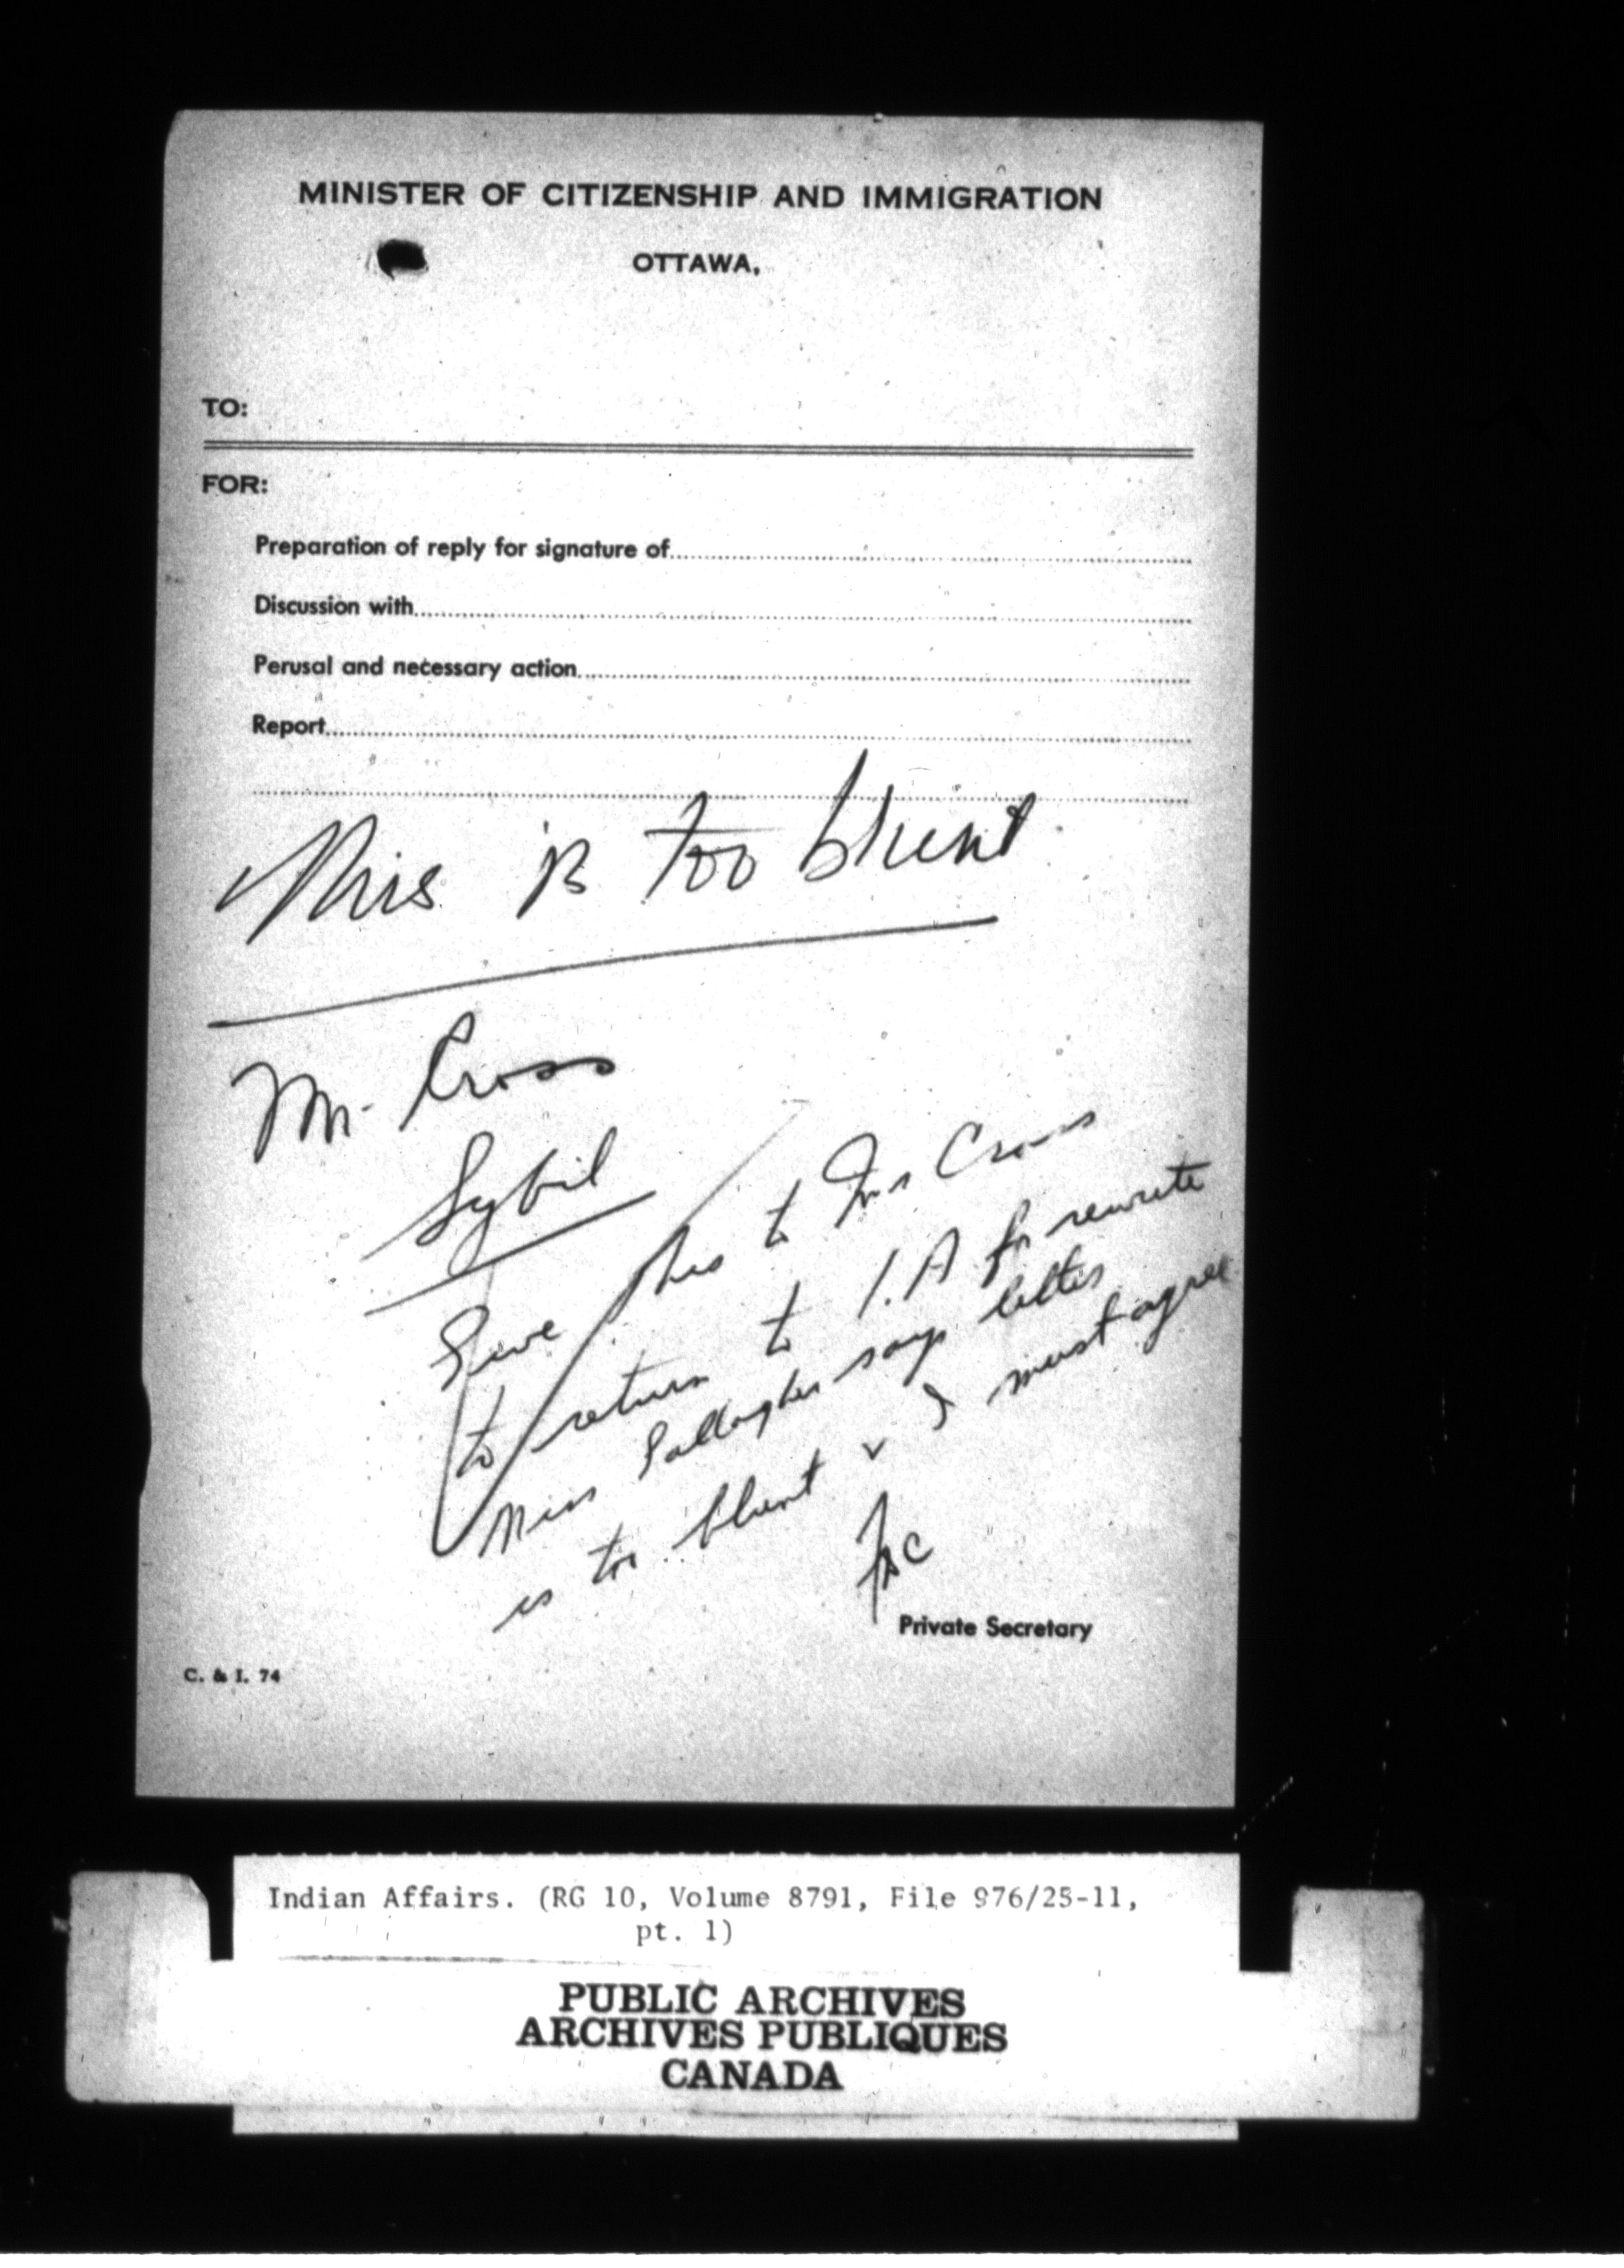 MINISTER OF CITIZENSHIP AND IMMIGRATION
OTTAWA,
TO:
FOR:
Preparation of reply for signature of
Discussion with
Perusal and necessary action
Report
This is too blunt
Mr. Cross
Sybil
Give this to Mr Cross
to return to I.A for rewrite
Miss Gallagher says letter
is too blunt & I must agree
Private Secretary
C. & I. 74
Indian Affairs. (RG 10, Volume 8791, File 976/25-11,
pt. 1)
PUBLIC ARCHIVES
ARCHIVES PUBLIQUES
CANADA